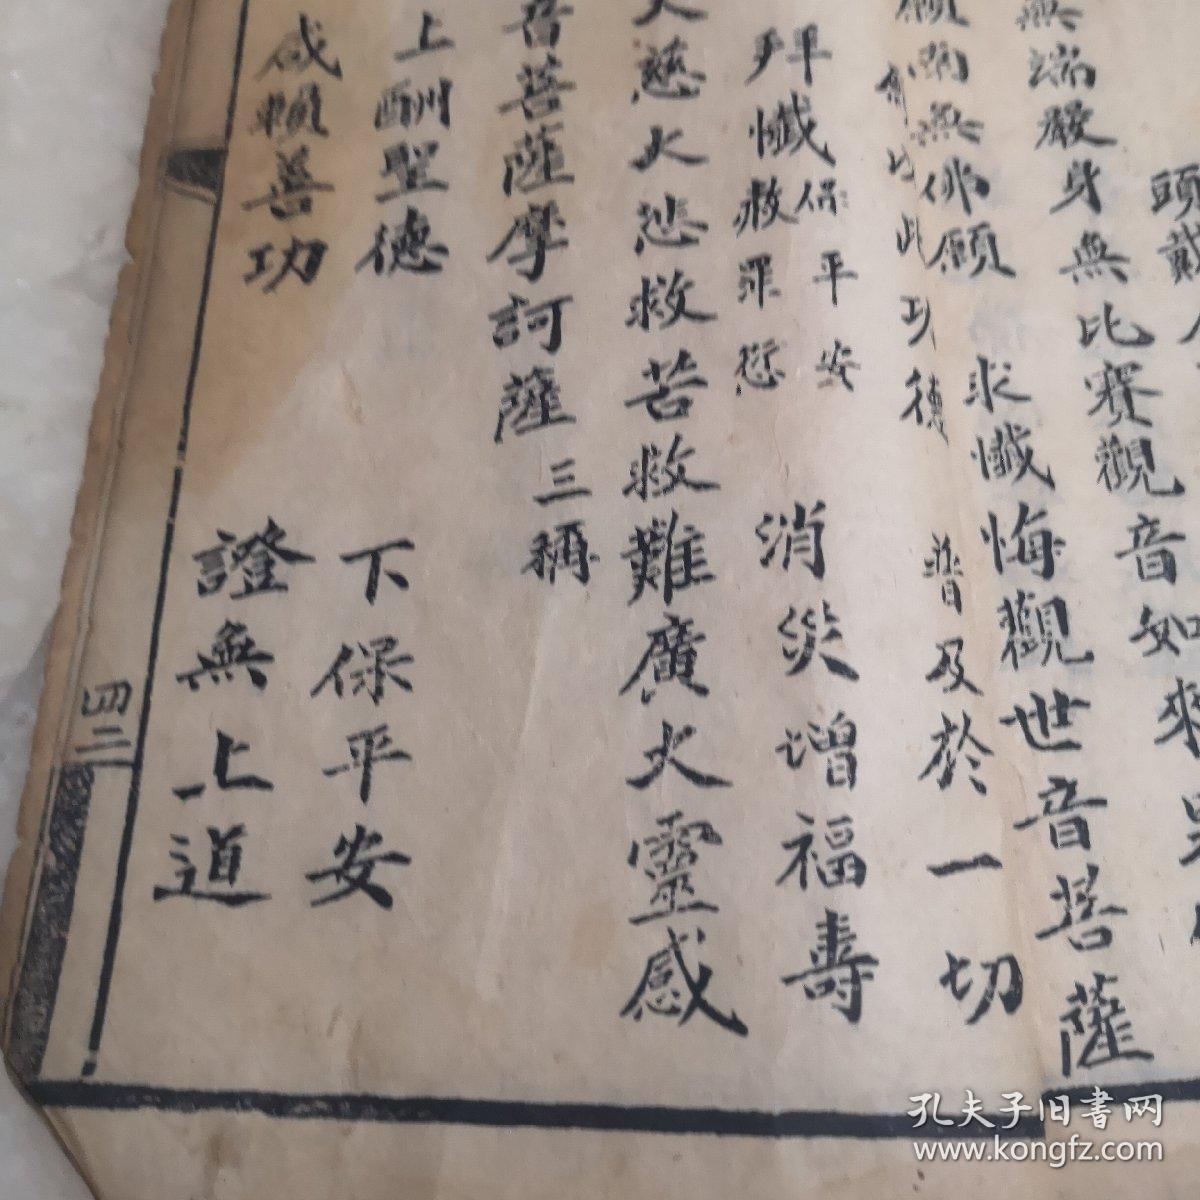 頭戴
無端嚴身無比賽觀音如來
願 無 願 求懺悔觀世音菩薩
以此功德 普及於一切
拜懺保平安 消災增福壽
救罪愆
大慈大悲救苦救難廣大靈感
音菩薩摩訶薩 三稱
上酬聖德 下保平安
咸賴善功 證無上道
四三
孔夫子旧书网
www.kongfz.com